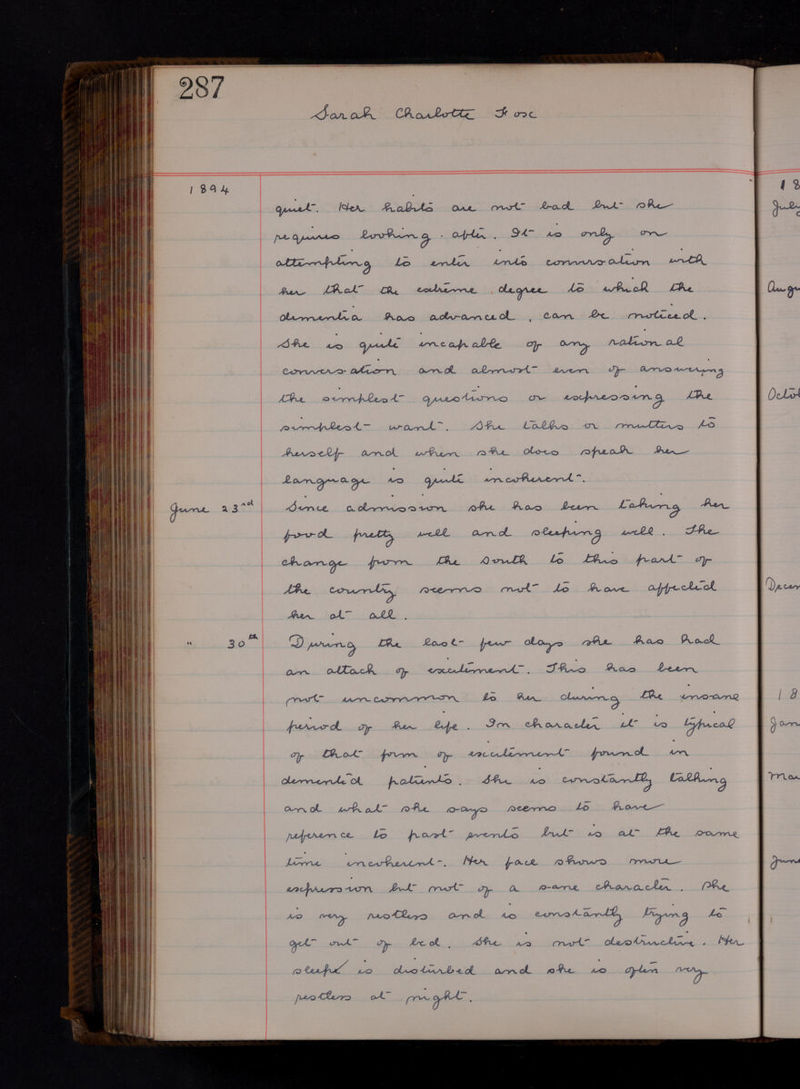 287
Sarah Charlotte
1894
quiet. Her habits are not bad but she
requires looking after. It is only on
attempting to enter into conversation with
her that the extreme degree to which the
dementia has advanced, can be noticed.
She is quite incapable of any rational
conversation and almost even of answering
the simplest questions or expressing the
simplest want. She talks or mutters to
herself and when she does speak her
language is quite incoherent.
June 23rd Since admission she has been taking her
food pretty well and sleeping well. The
change from the South to this part of
the country seems not to have affected
her at all.
" 30th During the last few days she has had
an attack of excitement. This has been
not uncommon to her during the insane
period of her life. In character it is typical
of that form of excitement found in
demented patients. She is constantly talking
and what she says seems to have
reference to past events but is at the same
time incoherent. Her face shows more
expression but not of a sane character. She
is very restless and is constantly trying to
get out of bed. She is not destructive. Her
sleep is disturbed and she is often very
restless at night.
18
July
Octo
18
Jan